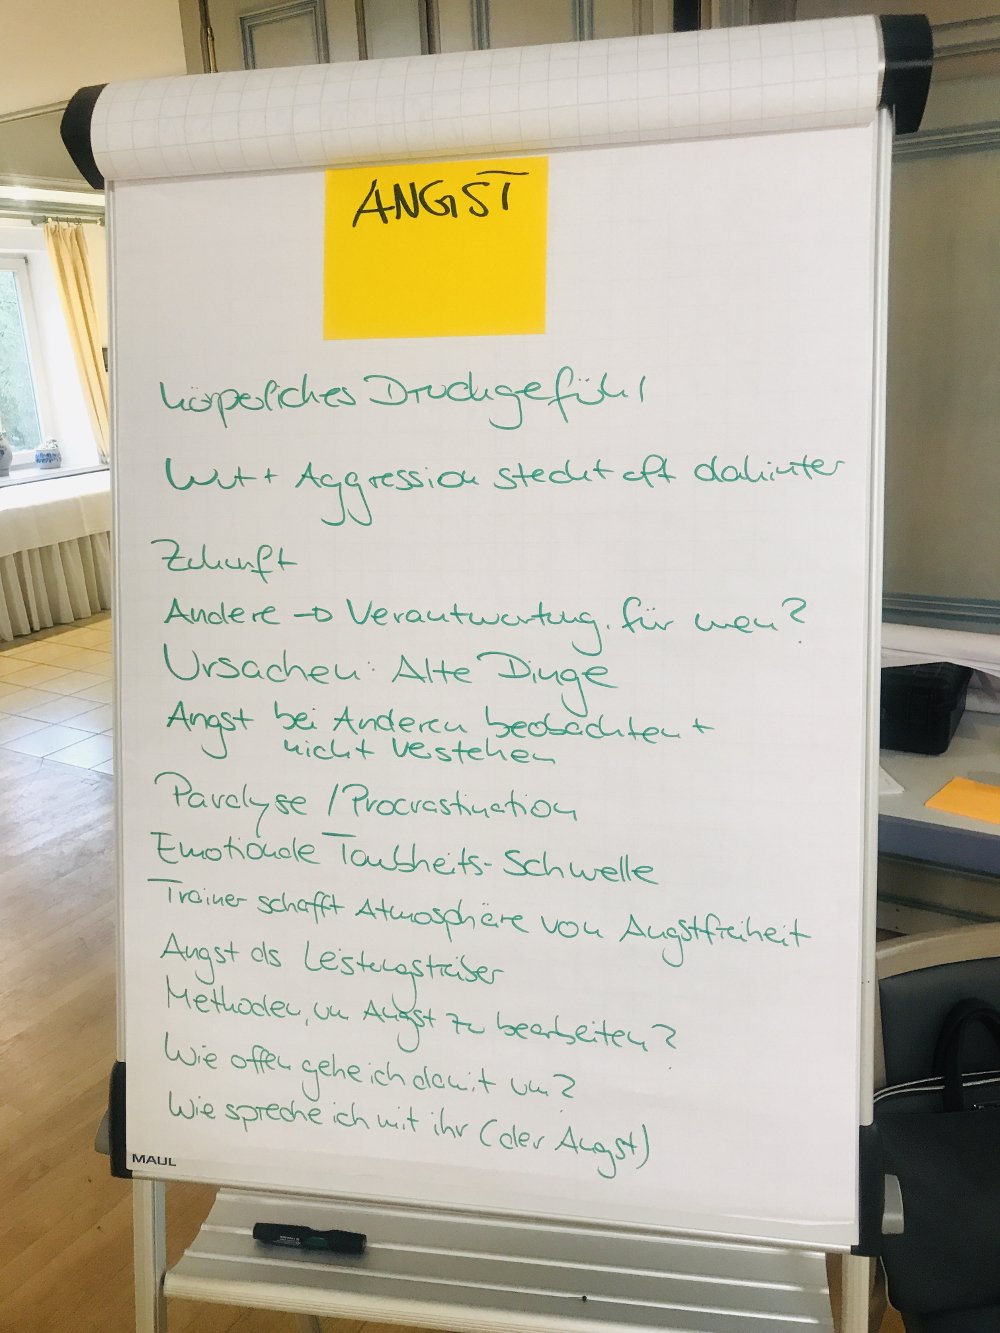 ANGST
körperliches Druckgefühl
Wut + Aggression steckt oft dahinter
Zukunft
Andere → Verantwortung für wen?
Ursachen: Alte Dinge
Angst bei Anderen beobachten +
nicht verstehen
Paralyse / Procrastination
Emotionale Taubheits-Schwelle
Trainer schafft Atmosphäre von Angstfreiheit
Angst als Leistungstreiber
Methoden, um Angst zu bearbeiten?
Wie offen gehe ich damit um?
Wie spreche ich mit ihr (der Angst)
MAUL